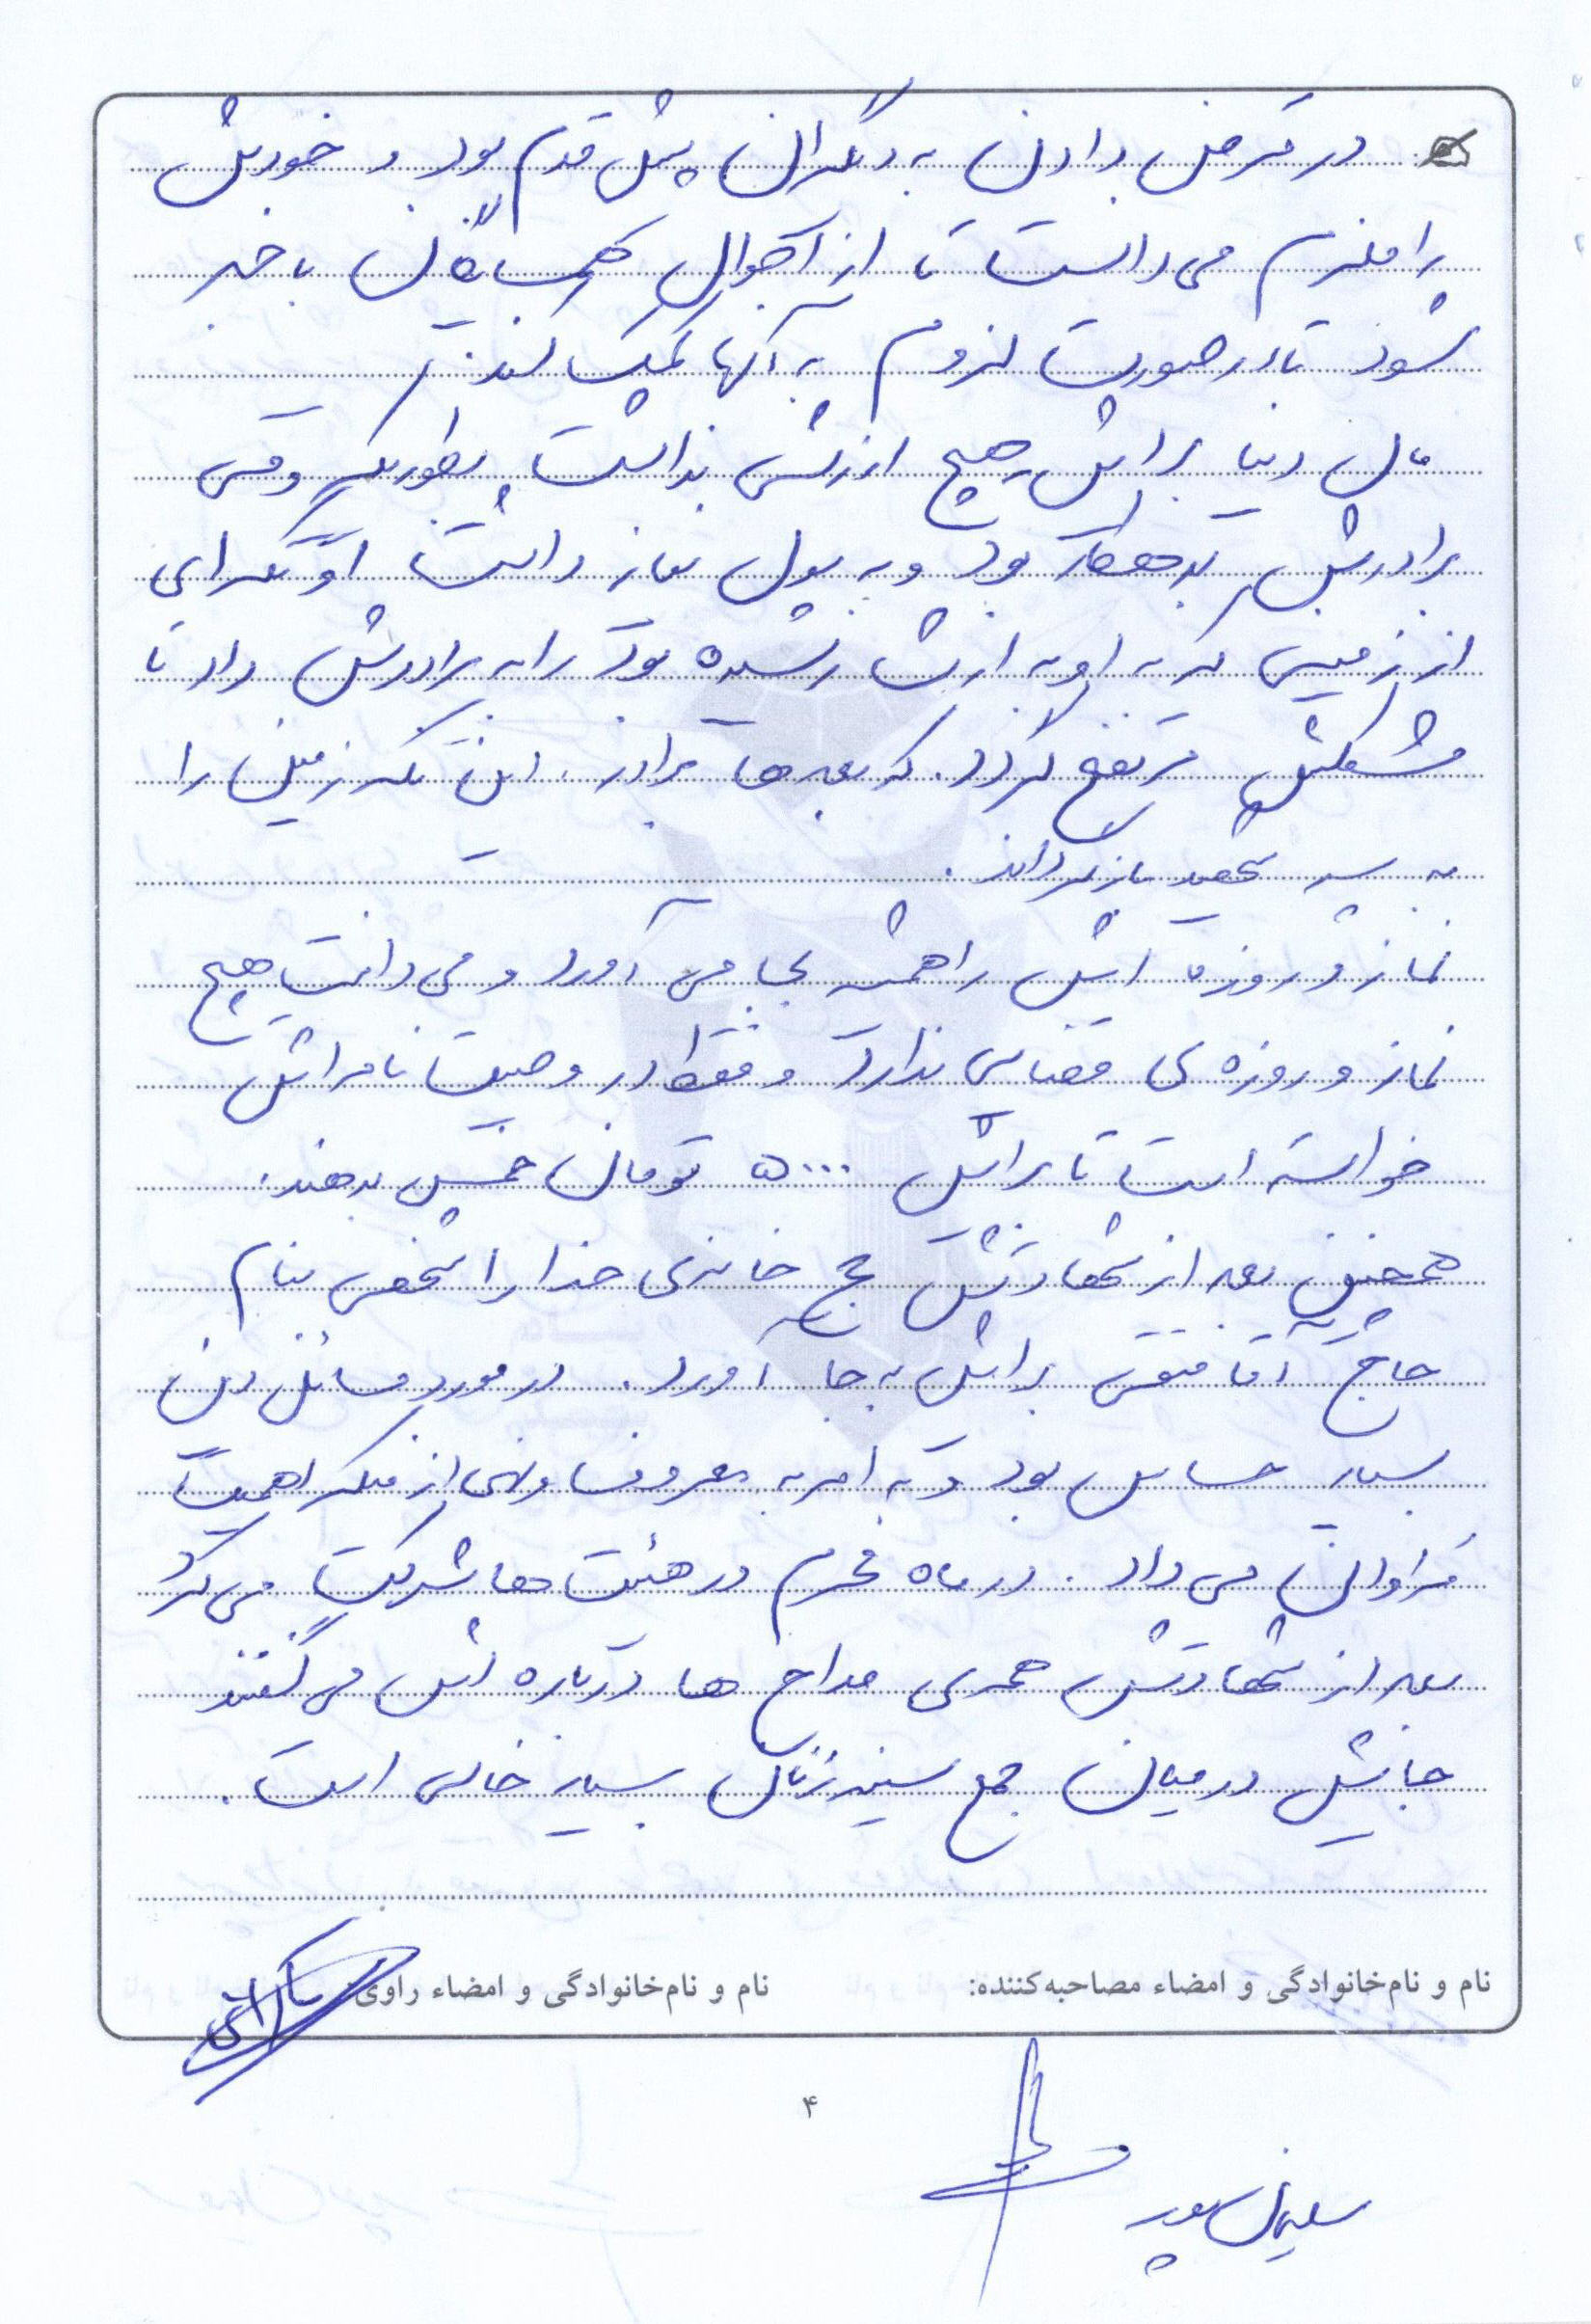 در قرض دادن به دیگران پیش قدم بود و خودش
را ملزم می دانست تا از احوال همسایگان با خبر
شود تا در صورت لزوم به آنها کمک کند.
مال دنیا برایش هیچ ارزشی نداشت بطوریکه وقتی
برادرش بدهکار بود و به پول نیاز داشت او تکه ای
از زمینی که به او به ارث رسیده بود را به برادرش داد تا
مشکلش مرتفع گردد. که بعدها برادر، این تکه زمین را
به پسر شهید بازگرداند.
نماز و روزه اش را همیشه بجا می آورد و می دانست هیچ
نماز و روزه ی قضایی ندارد و فقط در وصیت نامه اش
خواسته است تا برایش ۵۰۰۰ تومان خمس بدهند.
همچنین بعد از شهادتش حج خانه ی خدا را شخصی بنام
حاج آقا متقی برایش به جا آورد. در مورد مسائل دین
بسیار حساس بود و به امر به معروف و نهی از منکر اهمیت
فراوان می داد. در ماه محرم در هیئت ها شرکت می کرد
بعد از شهادتش همه ی مداح ها درباره اش می گفتند
جایش در میان جمع سینه زنان بسیار خالی است.
نام و نام‌خانوادگی و امضاء مصاحبه‌کننده: نام و نام‌خانوادگی و امضاء راوی:
۴
سلیمان پور